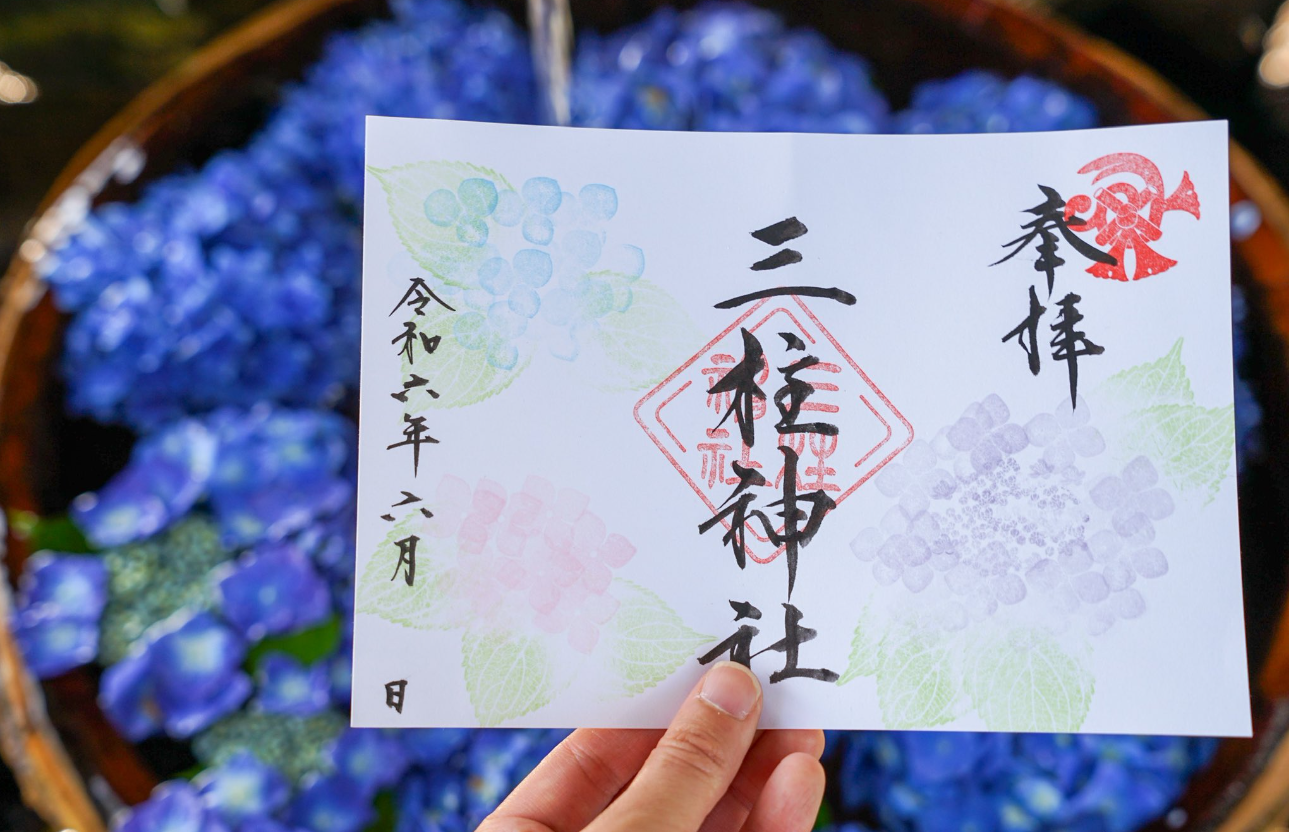 奉拝
三柱神社
三柱神社
令和六年六月 日